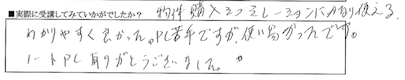 ■実際に受講してみていかがでしたか?
物件購入シミュレーションがかなり使える。
わかりやすく良かった。PC苦手ですが、使い易かったです。
ノートPCありがとうございました。